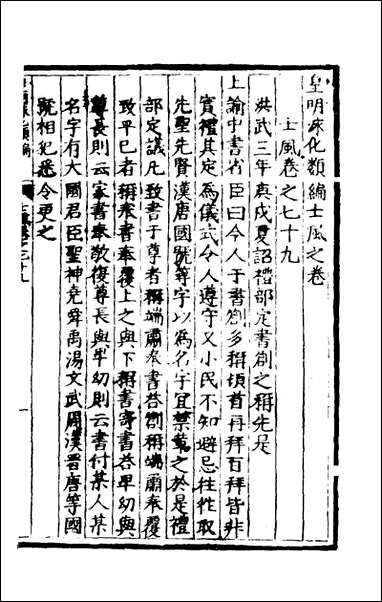 皇明泳化類編士風之卷
士風卷之七十九
洪武三年庚戌夏詔禮部定書劄之稱先是
上諭中書省臣曰今人于書劄多稱頓首再拜百拜皆非
實禮其定為儀式令人遵守又小民不知避忌往往取
先聖先賢漢唐國號等字以為名字宜禁革之於是禮
部定議凡致書于尊者稱端肅奉書荅劄稱端肅奉覆
致平巳者稱奉書奉覆上之與下稱書寄書荅卑幼與
尊長則云家書奉敬復尊長與卑幼則云書付某人某
名字有大國君臣聖神堯舜禹湯文武周漢晉唐等國
號相犯悉令更之